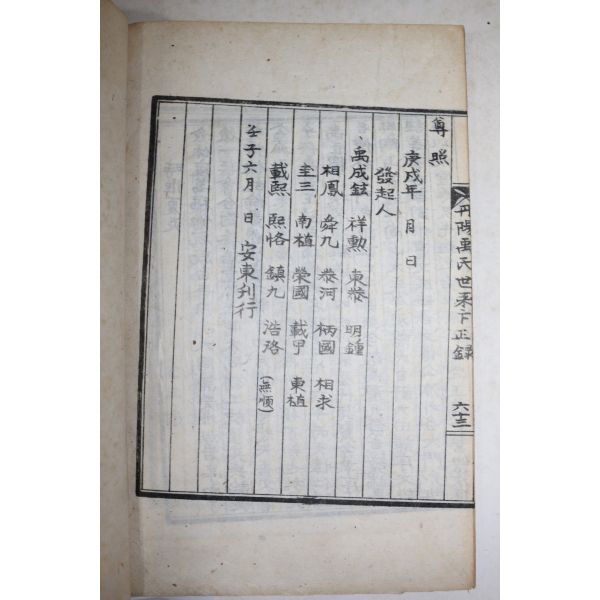 丹陽禹氏世乘下正錄
六十三
尊照
庚戌年 月 日
發起人
禹成鉉 祥勲 東泰 明鍾
相鳳 舜九 泰河 柄國 相求
圭三 南植 榮國 載甲 東植
載熙 熙恪 鎮九 浩珞 (無順)
壬子六月 日 安東刊行